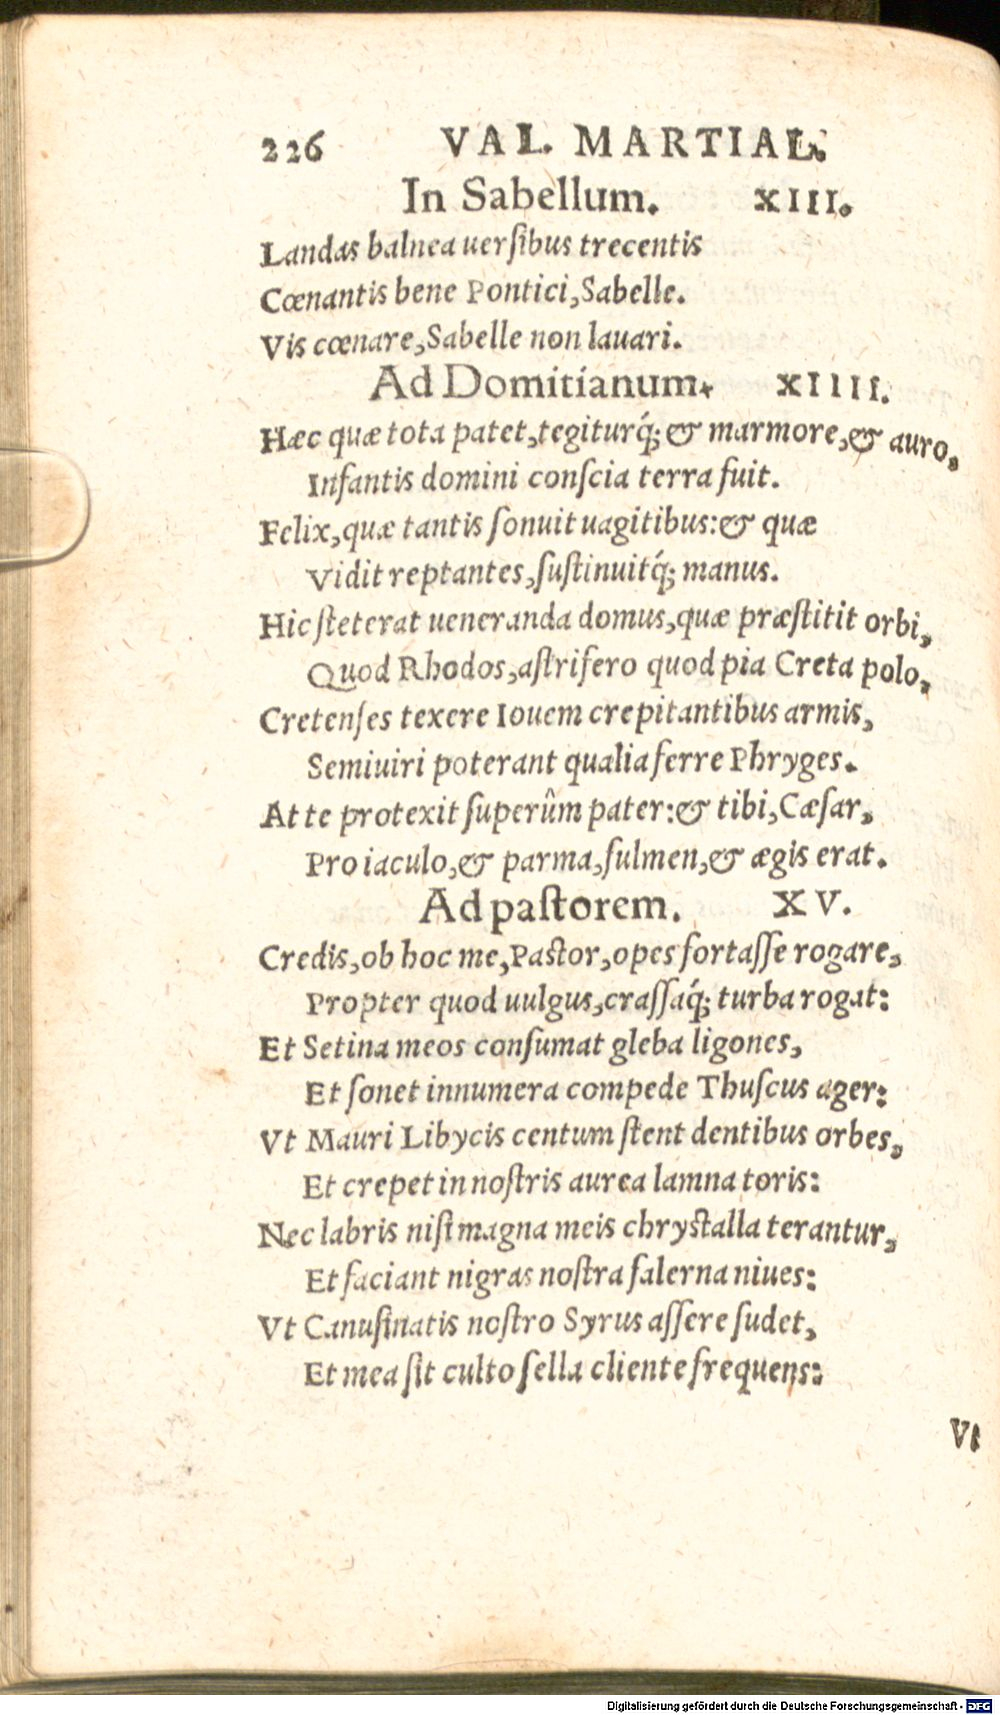 226 VAL. MARTIAL.
In Sabellum. XIII.
Landas balnea uersibus trecentis
Cœnantis bene Pontici, Sabelle.
Vis cœnare, Sabelle non lauari.
Ad Domitianum. XIIII.
Hæc quæ tota patet, tegiturq́; & marmore, & auro,
Infantis domini conscia terra fuit.
Felix, quæ tantis sonuit uagitibus: & quæ
Vidit reptantes, sustinuitq́; manus.
Hic steterat ueneranda domus, quæ præstitit orbi,
Quod Rhodos, astrifero quod pia Creta polo,
Cretenses texere Iouem crepitantibus armis,
Semiuiri poterant qualia ferre Phryges.
At te protexit superûm pater: & tibi, Cæsar,
Pro iaculo, & parma, fulmen, & ægis erat.
Ad pastorem. XV.
Credis, ob hoc me, Pastor, opes fortasse rogare,
Propter quod uulgus, crassaq́; turba rogat:
Et Setina meos consumat gleba ligones,
Et sonet innumera compede Thuscus ager:
Vt Mauri Libycis centum stent dentibus orbes,
Et crepet in nostris aurea lamna toris:
Nec labris nisi magna meis chrystalla terantur,
Et faciant nigras nostra falerna niues:
Vt Canusinatis nostro Syrus assere sudet,
Et mea sit culto sella cliente frequens:
Vt
Digitalisierung gefördert durch die Deutsche Forschungsgemeinschaft - DFG